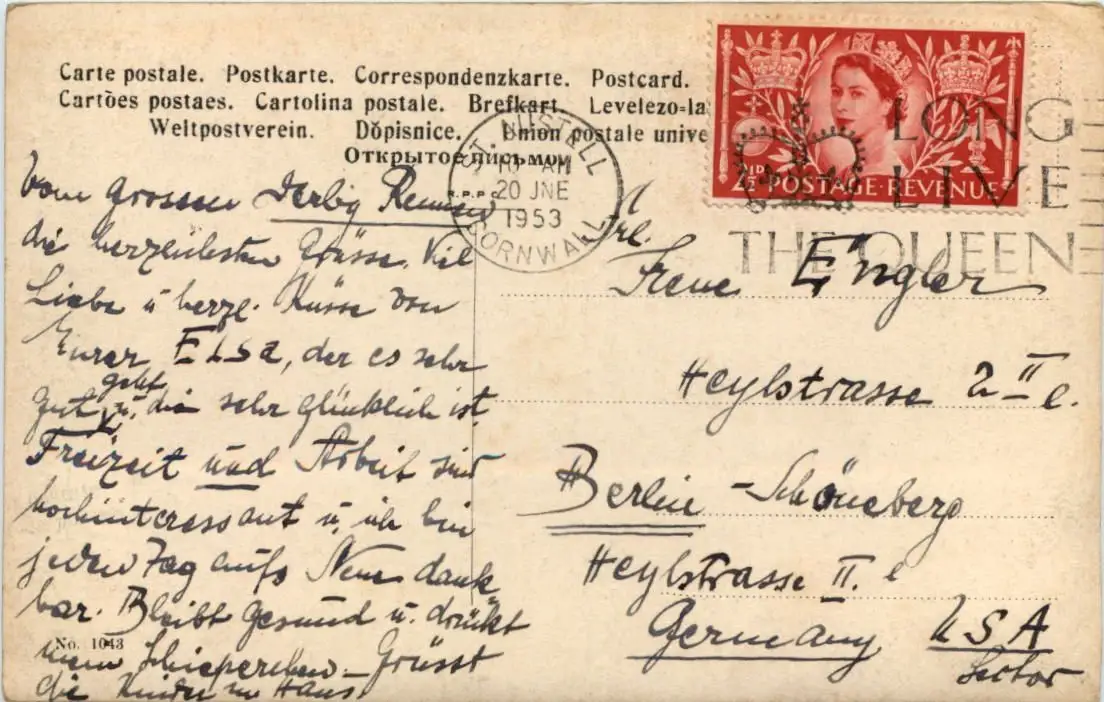 Carte postale. Postkarte. Correspondenzkarte. Postcard.
Cartões postaes. Cartolina postale. Brefkart. Levelezo=la
Weltpostverein. Dŏpisnice. Union postale unive
Открытое письмо.
ST. AUSTELL
10 - AM
20 JNE
1953
CORNWALL
2½D POSTAGE REVENUE
LONG
LIVE
THE QUEEN
Vom grossen Derby Rennen
die herzlichsten Grüsse. Viel
Liebe u herzl. Küsse von
Eurer Elsa, der es sehr
gut geht u. die sehr glücklich ist.
Freizeit und Arbeit sind
hochinteressant u. ich bin
jeden Tag aufs Neue dank-
bar. Bleibt gesund u. drückt
mein - Grüsst
die Kinder im Haus.
No. 1043
Frl.
Irene Engler
Heylstrasse 2 II l.
Berlin - Schöneberg
Heylstrasse II. l
Germany USA
Sector